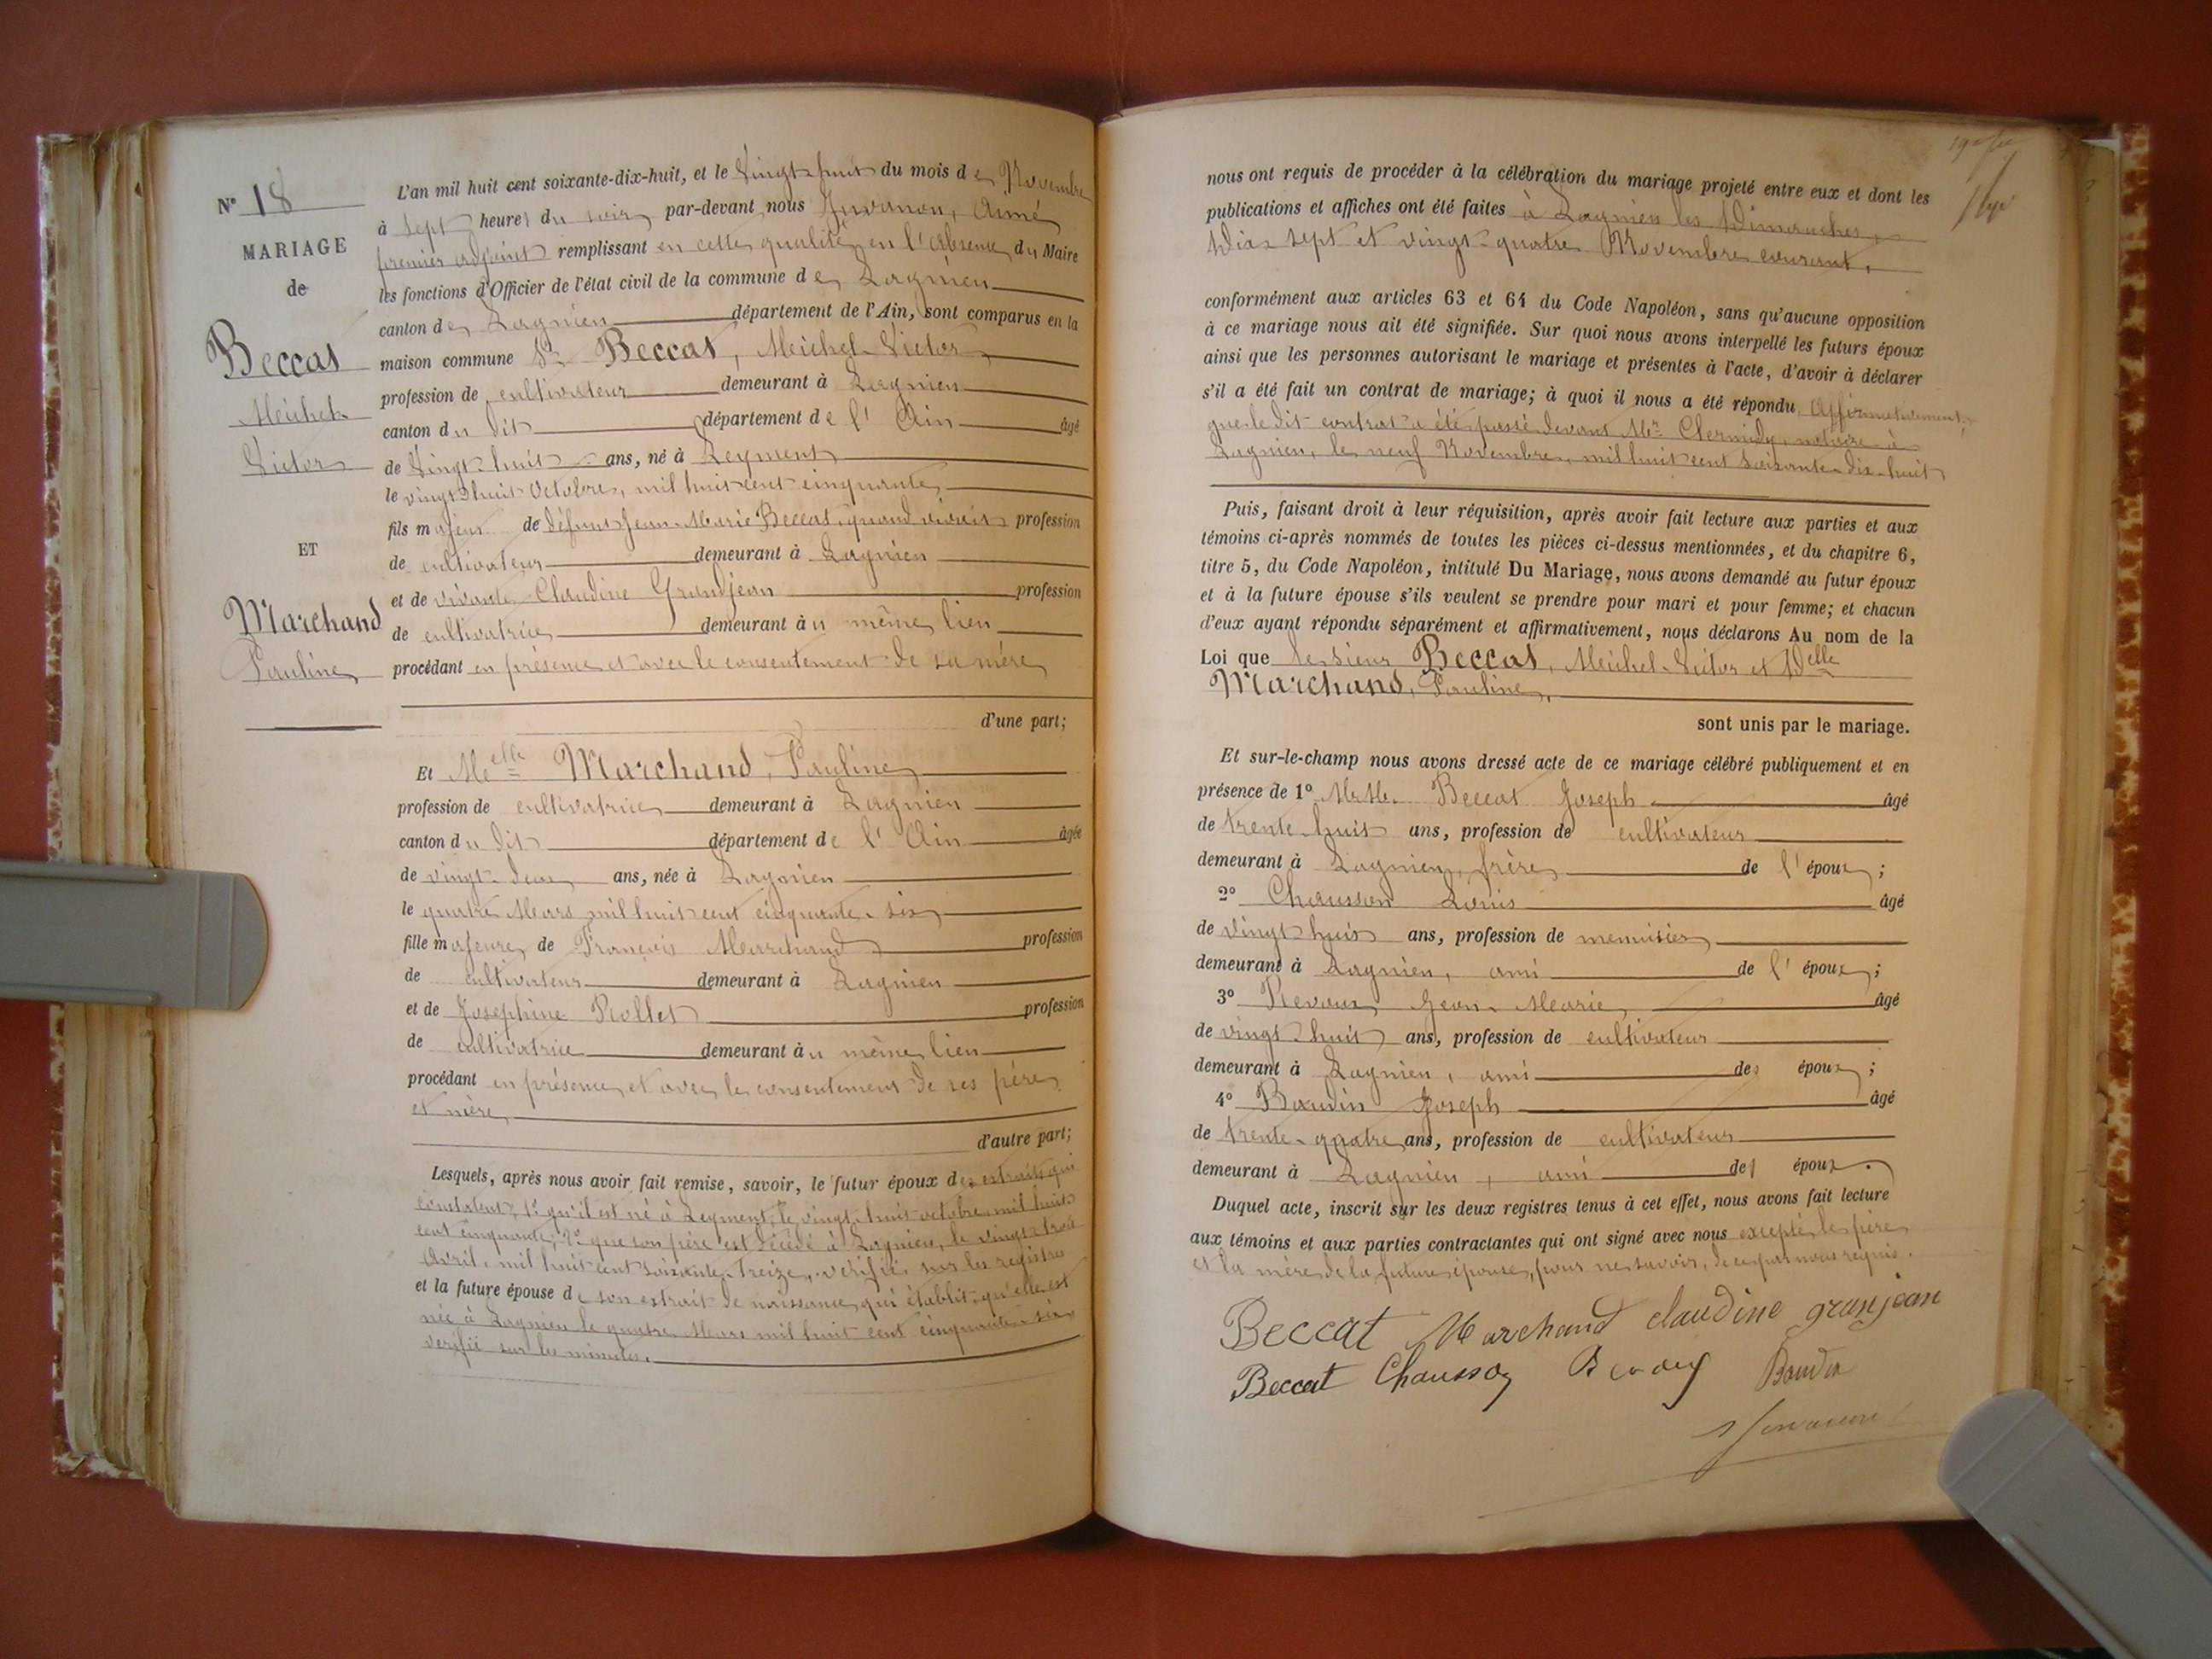 N° 18
MARIAGE
de
Beccat
Michel
Victor
ET
Marchand
Pauline
L'an mil huit cent soixante-dix-huit, et le vingt huit du mois de Novembre
à sept heures du soir, par-devant nous Juvanon, Aimé
premier adjoint remplissant en cette qualité, en l'absence du Maire
les fonctions d'Officier de l'état civil de la commune de Lagnieu
canton de Lagnieu département de l'Ain, sont comparus en la
maison commune Sr Beccat, Michel-Victor
profession de cultivateur demeurant à Lagnieu
canton du dit département de l'Ain âgé
de vingt-huit ans, né à Leyment
le vingt huit Octobre, mil huit cent cinquante
fils majeur de défunt Jean-Marie Beccat, quand vivait profession
de cultivateur demeurant à Lagnieu
et de vivante Claudine Grandjean profession
de cultivatrice demeurant au même lieu
procédant en présence et avec le consentement de sa mère
d'une part;
Et Melle Marchand, Pauline
profession de cultivatrice demeurant à Lagnieu
canton du dit département de l'Ain âgée
de vingt-deux ans, née à Lagnieu
le quatre Mars mil huit cent cinquante-six
fille majeure de François Marchand profession
de cultivateur demeurant à Lagnieu
et de Josephine Rollet profession
de cultivatrice demeurant au même lieu
procédant en présence et avec le consentement de ses père
et mère
d'autre part;
Lesquels, après nous avoir fait remise, savoir, le futur époux des extraits qui
constatent, 1° qu'il est né à Leyment, le vingt-huit octobre mil huit
cent cinquante; 2° que son père est décédé à Lagnieu, le vingt-trois
Avril, mil huit cent soixante-treize, vérifié sur les registres
et la future épouse de son extrait de naissance qui établit qu'elle est
née à Lagnieu le quatre Mars mil huit cent cinquante-six
vérifié sur les minutes.
nous ont requis de procéder à la célébration du mariage projeté entre eux et dont les
publications et affiches ont été faites à Lagnieu les Dimanches,
Dix-sept et vingt-quatre Novembre courant,
conformément aux articles 63 et 64 du Code Napoléon, sans qu'aucune opposition
à ce mariage nous ait été signifiée. Sur quoi nous avons interpellé les futurs époux
ainsi que les personnes autorisant le mariage et présentes à l'acte, d'avoir à déclarer
s'il a été fait un contrat de mariage; à quoi il nous a été répondu Affirmativement,
que le dit contrat a été passé devant Mr Chermidy, notaire à
Lagnieu, le neuf Novembre, mil huit cent soixante-dix-huit
Puis, faisant droit à leur réquisition, après avoir fait lecture aux parties et aux
témoins ci-après nommés de toutes les pièces ci-dessus mentionnées, et du chapitre 6,
titre 5, du Code Napoléon, intitulé Du Mariage, nous avons demandé au futur époux
et à la future épouse s'ils veulent se prendre pour mari et pour femme; et chacun
d'eux ayant répondu séparément et affirmativement, nous déclarons Au nom de la
Loi que le sieur Beccat, Michel-Victor et Delle
Marchand, Pauline,
sont unis par le mariage.
Et sur-le-champ nous avons dressé acte de ce mariage célébré publiquement et en
présence de 1° MrM. Beccat Joseph âgé
de trente-huit ans, profession de cultivateur
demeurant à Lagnieu, frère de l'époux;
2° Chausson Louis âgé
de vingt huit ans, profession de menuisier
demeurant à Lagnieu, ami de l'époux;
3° Revoux Jean-Marie âgé
de vingt huit ans, profession de cultivateur
demeurant à Lagnieu, ami des époux;
4° Baudin Joseph âgé
de trente-quatre ans, profession de cultivateur
demeurant à Lagnieu, ami des époux.
Duquel acte, inscrit sur les deux registres tenus à cet effet, nous avons fait lecture
aux témoins et aux parties contractantes qui ont signé avec nous excepté le père
et la mère de la future épouse, pour ne savoir, de ce par nous requis.
Beccat Marchand claudine granjean
Beccat Chausson Baudin
Juvanon